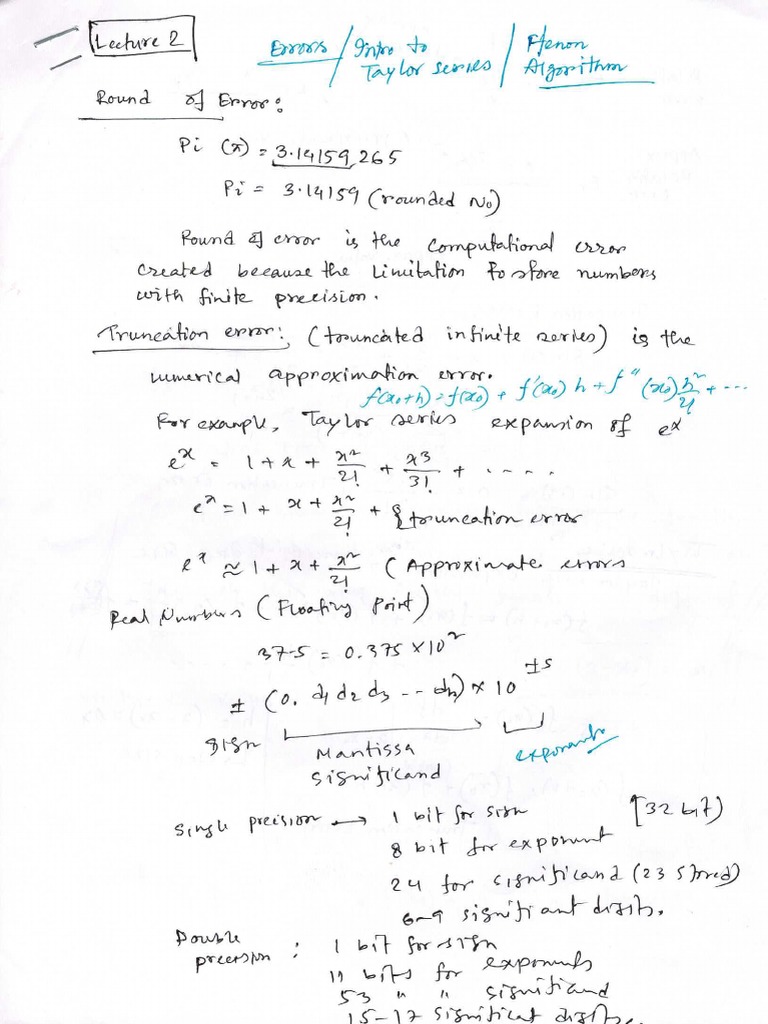 Lecture 2
Errors / Intro to Taylor series / Algorithm
Round of Error:
Pi (π) = 3.14159,265
Pi = 3.14159 (rounded No)
Round of error is the computational error
created because the Limitation to store numbers
with finite precision.
Truncation error: (truncated infinite series) is the
numerical approximation error.
f(x₀+h) = f(x₀) + f'(x₀) h + f''(x₀) h²/2! + ...
For example, Taylor series expansion of eˣ
eˣ = 1 + x + x²/2! + x3/3! + .....
eˣ = 1 + x + x²/2! + { truncation error
eˣ ≈ 1 + x + x²/2! (Approximate errors
Real Numbers (Floating Point)
37.5 = 0.375 × 10²
± (0. d1 d2 d3 -- dn) × 10 ±s
sign Mantissa exponents
significand
Single precision → 1 bit for sign [32 bit)
8 bit for exponent
24 for significand (23 stored)
6-9 significant digits.
Double precision : 1 bit for sign
11 bits for exponents
53 " " significand
15-17 significat digits.